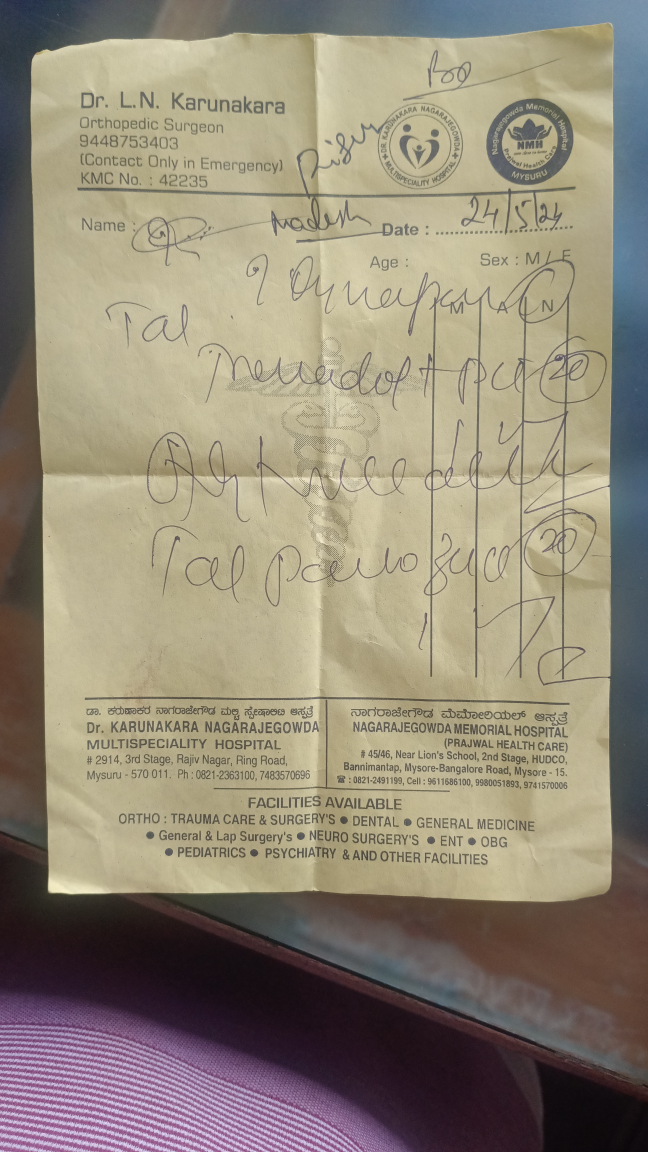 Dr. L.N. Karunakara
Orthopedic Surgeon
9448753403
(Contact Only in Emergency)
KMC No. : 42235
DR. KARUNAKARA NAGARAJEGOWDA MULTISPECIALITY HOSPITAL
Nagarajegowda Memorial Hospital
NMH
Prajwal Health Care
MYSURU
Name :
Madesh
Date : 24/5/24
Age :
Sex : M / F
M A N
Tal
+ 20
Tal 20
ಡಾ. ಕರುಣಾಕರ ನಾಗರಾಜೇಗೌಡ ಮಲ್ಟಿ ಸ್ಪೆಷಾಲಿಟಿ ಆಸ್ಪತ್ರೆ
Dr. KARUNAKARA NAGARAJEGOWDA
MULTISPECIALITY HOSPITAL
# 2914, 3rd Stage, Rajiv Nagar, Ring Road,
Mysuru - 570 011. Ph : 0821-2363100, 7483570696
ನಾಗರಾಜೇಗೌಡ ಮೆಮೋರಿಯಲ್ ಆಸ್ಪತ್ರೆ
NAGARAJEGOWDA MEMORIAL HOSPITAL
(PRAJWAL HEALTH CARE)
# 45/46, Near Lion's School, 2nd Stage, HUDCO,
Bannimantap, Mysore-Bangalore Road, Mysore - 15.
☎ : 0821-2491199, Cell : 9611686100, 9980051893, 9741570006
FACILITIES AVAILABLE
ORTHO : TRAUMA CARE & SURGERY'S ● DENTAL ● GENERAL MEDICINE
● General & Lap Surgery's ● NEURO SURGERY'S ● ENT ● OBG
● PEDIATRICS ● PSYCHIATRY & AND OTHER FACILITIES